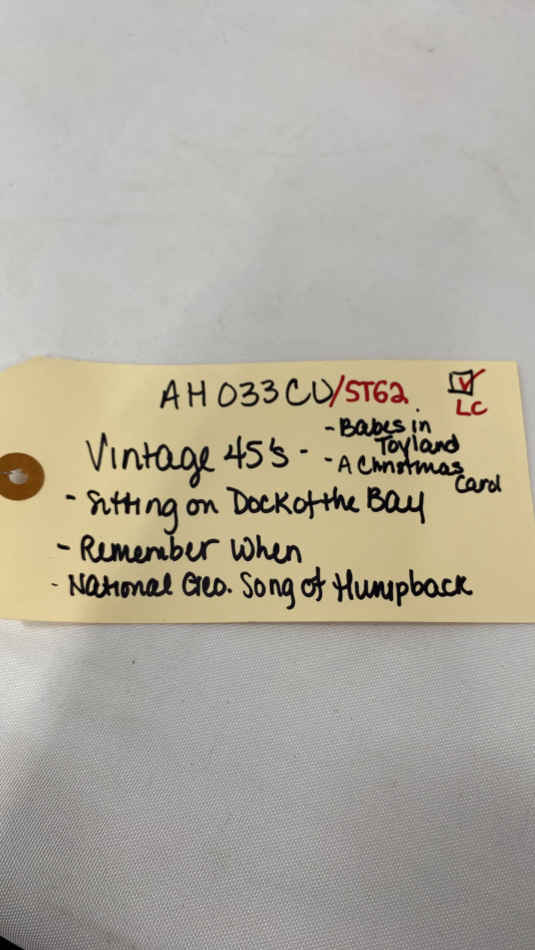 AH033CU/ST62
LC
Vintage 45's -
- Babes in
Toyland
- A Christmas
Carol
- Sitting on Dock of the Bay
- Remember When
- National Geo. Song of Humpback